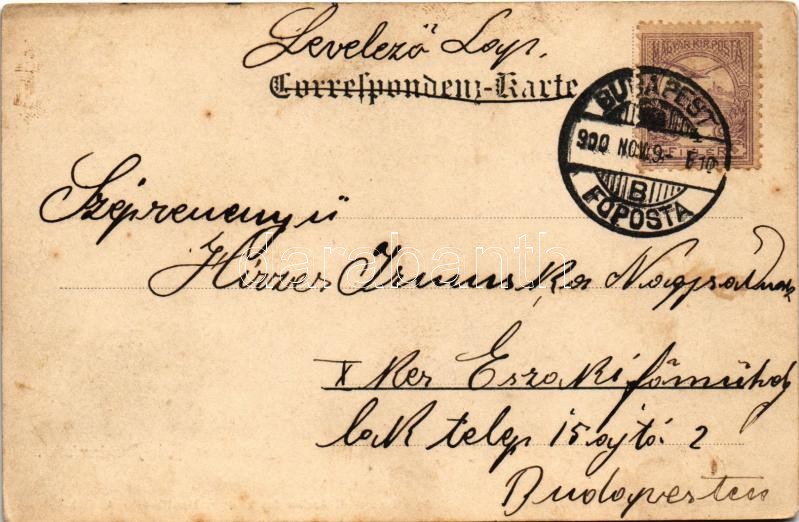 Levelező Lap.
Correspondenz-Karte
MAGYAR KIR. POSTA
BUDAPEST
900 NOV. 9 - E10
B
FŐPOSTA
darabanth
Szépreményű
Hirzer Irmuska Nagysádnak
X Ker Eszaki főműhely
lak telep 15 ajtó 2
Budapesten